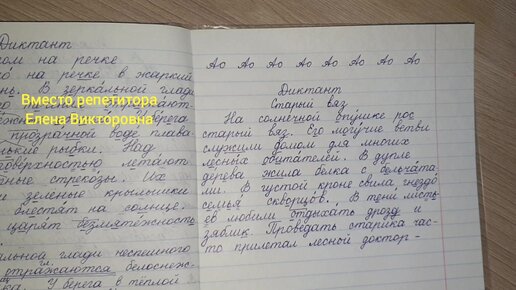 Диктант
ом на речке
о на речке в жаркий
нь. В зеркальной глади
Вместо репетитора
Елена Викторовна
прозрачной воде плава
лькие рыбки. Над
оверхностью летают
ные стрекозы. Их
и зеленые крылышки
блестят на солнце.
царят безмятежность
альной глади неспешного
отражаются белоснеж-
ка. У берега в тёплой
Ао Ао Ао Ао Ао Ао Ао Ао
Диктант
Старый вяз
На солнечной опушке рос
старый вяз. Его могучие ветви
служили домом для многих
лесных обитателей. В дупле
дерева жила белка с бельчата
ми. В густой кроне свила гнездо
семья скворцов. В тени листь
ев любили отдыхать дрозд и
зяблик. Проведать старика час-
то прилетал лесной доктор -